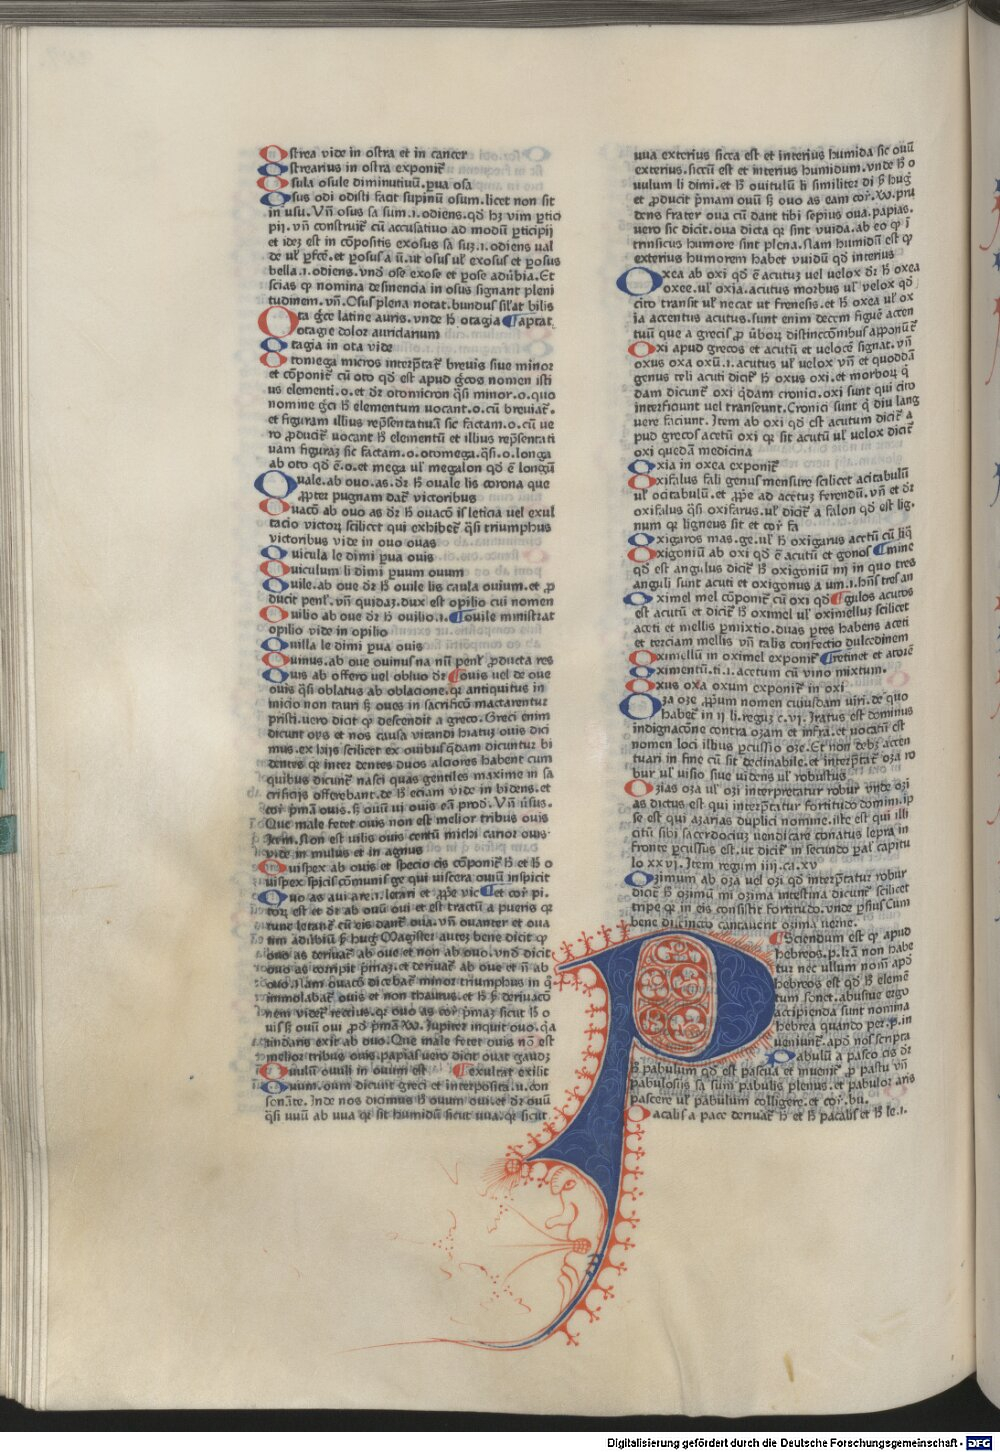 Ostrea vide in ostra et in cancer
Ostrearius in ostra exponit᷑
Osula osule diminutiuū. ꝑua osa
Osus odi odisti facit supinū osum. licet non sit
in usu. Vn̄ osus sa sum .i. odiens. qd̓ hꝫ vim ꝑticip
pij. vn̄ construit᷑ cū accusatiuo ad modū ꝑticipij
et ideꝫ est in cōpositis exosus sa suꝫ .i. odiens ual
de ul̓ ꝑfcē. et ꝑosus a ū. ut osus ul̓ exosus et ꝑosus
bella .i. odiens. vnd̓ ose exose et ꝑose adūbia. Et
scias ꝙ nomina desinencia in osus signant pleni
tudinem. vn̄. Osus plena notat. bundus sil̓at bilis
Ota gr̄ce latine auris. vnde h̄ otagia ¶aptat.
otagie dolor auricularum
Otagia in ota vide
Otomega micros interp̄tat᷑ brevis sive minor
et cōponit᷑ cū oto qd̓ est apud gr̄cos nomen isti
us elementi .o. et dr̄ otomicron q̄si minor .o. quo
nomine gr̄ci h̄ elementum uocant .o. cū breviat᷑.
et figuram illius rep̄sentatiuā sic factam .o. cū ve
ro ꝓducit᷑ uocant h̄ elementū et illius rep̄sentati
uam figuraꝫ sic factam .o. otomega. q̄si .o. longa
ab oto qd̓ ē .o. et mega ul̓ megalon qd̓ ē longū
Ouale. ab ouo. as. dr̄ h̄ ouale lis corona que
ꝓpter pugnam dat᷑ victoribus
Ouacō ab ouo as dr̄ h̄ ouacō is leticia vel exul
tacio victoꝝ scilicet qui exhibet᷑ q̄si triumphus
victoribus vide in ouo ouas
Ouicula le dimi ꝑua ouis
Ouiculum li dimi ꝑuum ouum
Ouile. ab oue dr̄ h̄ ouile lis caula ouium. et ꝓ
ducit penl̓. vn̄ quidaꝫ. dux est opilio cui nomen
Ouilio ab oue dr̄ h̄ ouilio .i. ¶ouile ministrat
opilio vide in opilio
Ouilla le dimi ꝑua ouis
Ouinus. ab oue ouinus na nū penl̓ ꝓducta res
Ouis ab offero uel obluo dr̄ ¶ouis uel de oue
ouis q̄si oblatus ab oblacione. qꝛ antiquitus in
inicio non tauri sꝫ oues in sacrificō mactarentur
pristi. uero dicit ꝙ descendit a greco. Greci enim
dicunt oys et nos causa vitandi hiatuꝫ ouis dici
mus. ex hijs scilicet ex ouibus q̄dam dicuntur bi
dentes qꝛ inter dentes duos alciores habent cum
quibus dicunt᷑ nasci quas gentiles maxime in sa
crificijs offerebant. de h̄ eciam vide in bidens. et
cor̄ p̄mā ouis. sꝫ ouū ui ouis eā prod̓. Vn̄ ūsus.
Que male fetet ouis non est melior tribus ouis
Item. Non est uilis ouis centū michi carior ouis
vide in mulus et in agnus
Ouispex ab ouis et specio cis cōponit᷑ h̄ et h̄ o
uispex spicis cōmunis ge qui uiscera ouiū inspicit
Ouo as aui are .n. letari et ꝓpe vic ¶et cor̄ pi.
toꝝ est et dr̄ ab ouū oui et est tractū a pueris qꝛ
tunc letant᷑ cū eis dant᷑ oua. vn̄ ouanter et oua
tim adūbiū ẜ hug̓. Magister auteꝫ bene dicit ꝙ
ouo as deriuat᷑ ab oue et non ab ouo. vnd̓ dicit
ouo as corripit p̄maꝫ. et deriuat᷑ ab oue et n̄ ab
ouo. Nam ouacō dicebat᷑ minor triumphus in q̄
immolabat᷑ ouis et non thaurus. et h̄ ẜ deriuacō
nem videt᷑ rectius. qꝛ ouo as cor̄ p̄maꝫ sicut h̄ o
uis sꝫ ouū oui ꝓd̓ p̄mā. Jupiter inquit ouo. q̄a
tindaris exit ab ouo. Que male fetet ouis nō est
melior tribus ouis. papias uero dicit ouat gaudꝫ
Ouulū ouuli in ouum est ¶exultat exilit
Ouum. oum dicunt greci et interposita .u. con
sonāte. Inde nos dicimus h̄ ouum oui. et dr̄ ouū
q̄si uuū ab uua qꝛ sit humidū sicut uua. qꝛ sicut
uua exterius sicca est et interius humida sic ouū
exterius. siccū est et interius humidum. vnde h̄ o
uulum li dimi. et h̄ ouitulū li similiter di ẜ hug̓
et ꝓducit p̄mam ouū sꝫ ouo as eam cor̄. pru
dens frater oua cū dant tibi sepius oua. papias.
uero sic dicit. oua dicta qꝛ sint vuida. ab eo ꝙ i
trinsicus humore sint plena. Nam humidū est ꝙ
exterius humorem habet vuidū qd̓ interius
Oxea ab oxi qd̓ ē acutuꝫ uel velox dr̄ h̄ oxea
oxee. ul̓ oxia. acutus morbus ul̓ velox qd̓
cito transit ul̓ necat ut frenesis. et h̄ oxea ul̓ ox
ia accentus acutus. sunt enim decem figure accen
tuū que a grecis ꝓ ūboꝝ distinccōibus apponūt᷑
Oxi apud grecos et acutū et velocē signat. vn̄
oxus oxa oxū .i. acutus ul̓ velox vn̄ et quoddā
genus teli acuti dicit᷑ h̄ oxus oxi. et morboꝝ q̄
dam dicunt᷑ oxi q̄dam cronici. oxi sunt qui cito
interficiunt uel transeunt. Cronici sunt q̄ diu lang
uere faciunt. Item ab oxi qd̓ est acutum dicit᷑ a
pud grecos acetū oxi qꝛ sit acutū ul̓ velox dicit᷑
oxi quedā medicina
Oxia in oxea exponit᷑
Oxifalus fali genus mensure scilicet acitabulū
ul̓ ocitabulū. et ꝓpe ad acetuꝫ ferendū. vn̄ et dr̄
oxifalus q̄si oxifarus. ul̓ dicit᷑ a falon qd̓ est lig.
num qꝛ ligneus sit et cor̄ fa
Oxigaros mas. ge. ul̓ h̄ oxigarus acetū cū liq̄
Oxigoniū ab oxi qd̓ ē acutū et gonos ¶mine
qd̓ est angulus dicit᷑ h̄ oxigoniū nij in quo tres
anguli sunt acuti et oxigonus a um .i. hn̄s tres an
Oximel mel cōponit᷑ cū oxi qd̓ ¶gulos acutos
est acutū et dicit᷑ h̄ oximel ul̓ oximelluꝫ scilicet
aceti et mellis ꝑmixtio. duas ꝑtes habens aceti
et terciam mellis vn̄ talis confectio dulcedinem
Oximellū in oximel exponit᷑ ¶retinet et acorē
Oximentū. ti .i. acetum cū vino mixtum.
Oxus oxa oxum exponit᷑ in oxi
Oza oze ꝓpum nomen cuiusdam uiri. de quo
habet᷑ in ij li. reguꝫ c. vj. Iratus est dominus
indignacōne contra ozam et infra. et uocatū est
nomen loci illius ꝑcussio oze. Et non debꝫ accen
tuari in fine cū sit declinabile. et interp̄tat᷑ oza ro
bur ul̓ visio sive uidens ul̓ robustus
Ozias oza ul̓ ozi interpretatur robur vnde ozi
as dictus est qui interp̄tatur fortitudo domini. ip
se est qui azarias duplici nomine. iste est qui illi
citū sibi sacerdociuꝫ uendicare conatus lepra in
fronte ꝑcussus est. ut dicit᷑ in secundo paral̓ capitu
lo xxvj. Item regum iiij. ca. xv
Ozimum ab oza vel ozi qd̓ interp̄tatur robur
dicit᷑ h̄ ozimū mi ozima intestina dicunt᷑ scilicet
tripe qꝛ in eis consistit fortitudo. vnde ꝑsius Cum
bene discincto cantauerit ozima uerne.
P ¶Sciendum est ꝙ apud
hebreos .p. lr̄a non habe
tur nec ullum nomē apd̓
hebreos est qd̓ h̄ elemē
tum sonet. abusiue ergo
accipienda sunt nomina
hebrea quando per .p. in
ueniunt᷑. apd̓ nos scripta
Pabulū a pasco cis dr̄
h̄ pabulum qd̓ est pascua et inuenit᷑ ꝓ pastu vn̄
pabulosus sa sum pabulis plenus. et pabulor aris
pascere ul̓ pabulum colligere. et cor̄. bu.
Pacalis a pace deriuat᷑ h̄ et h̄ pacalis et h̄ le .i.
Digitalisierung gefördert durch die Deutsche Forschungsgemeinschaft - DFG